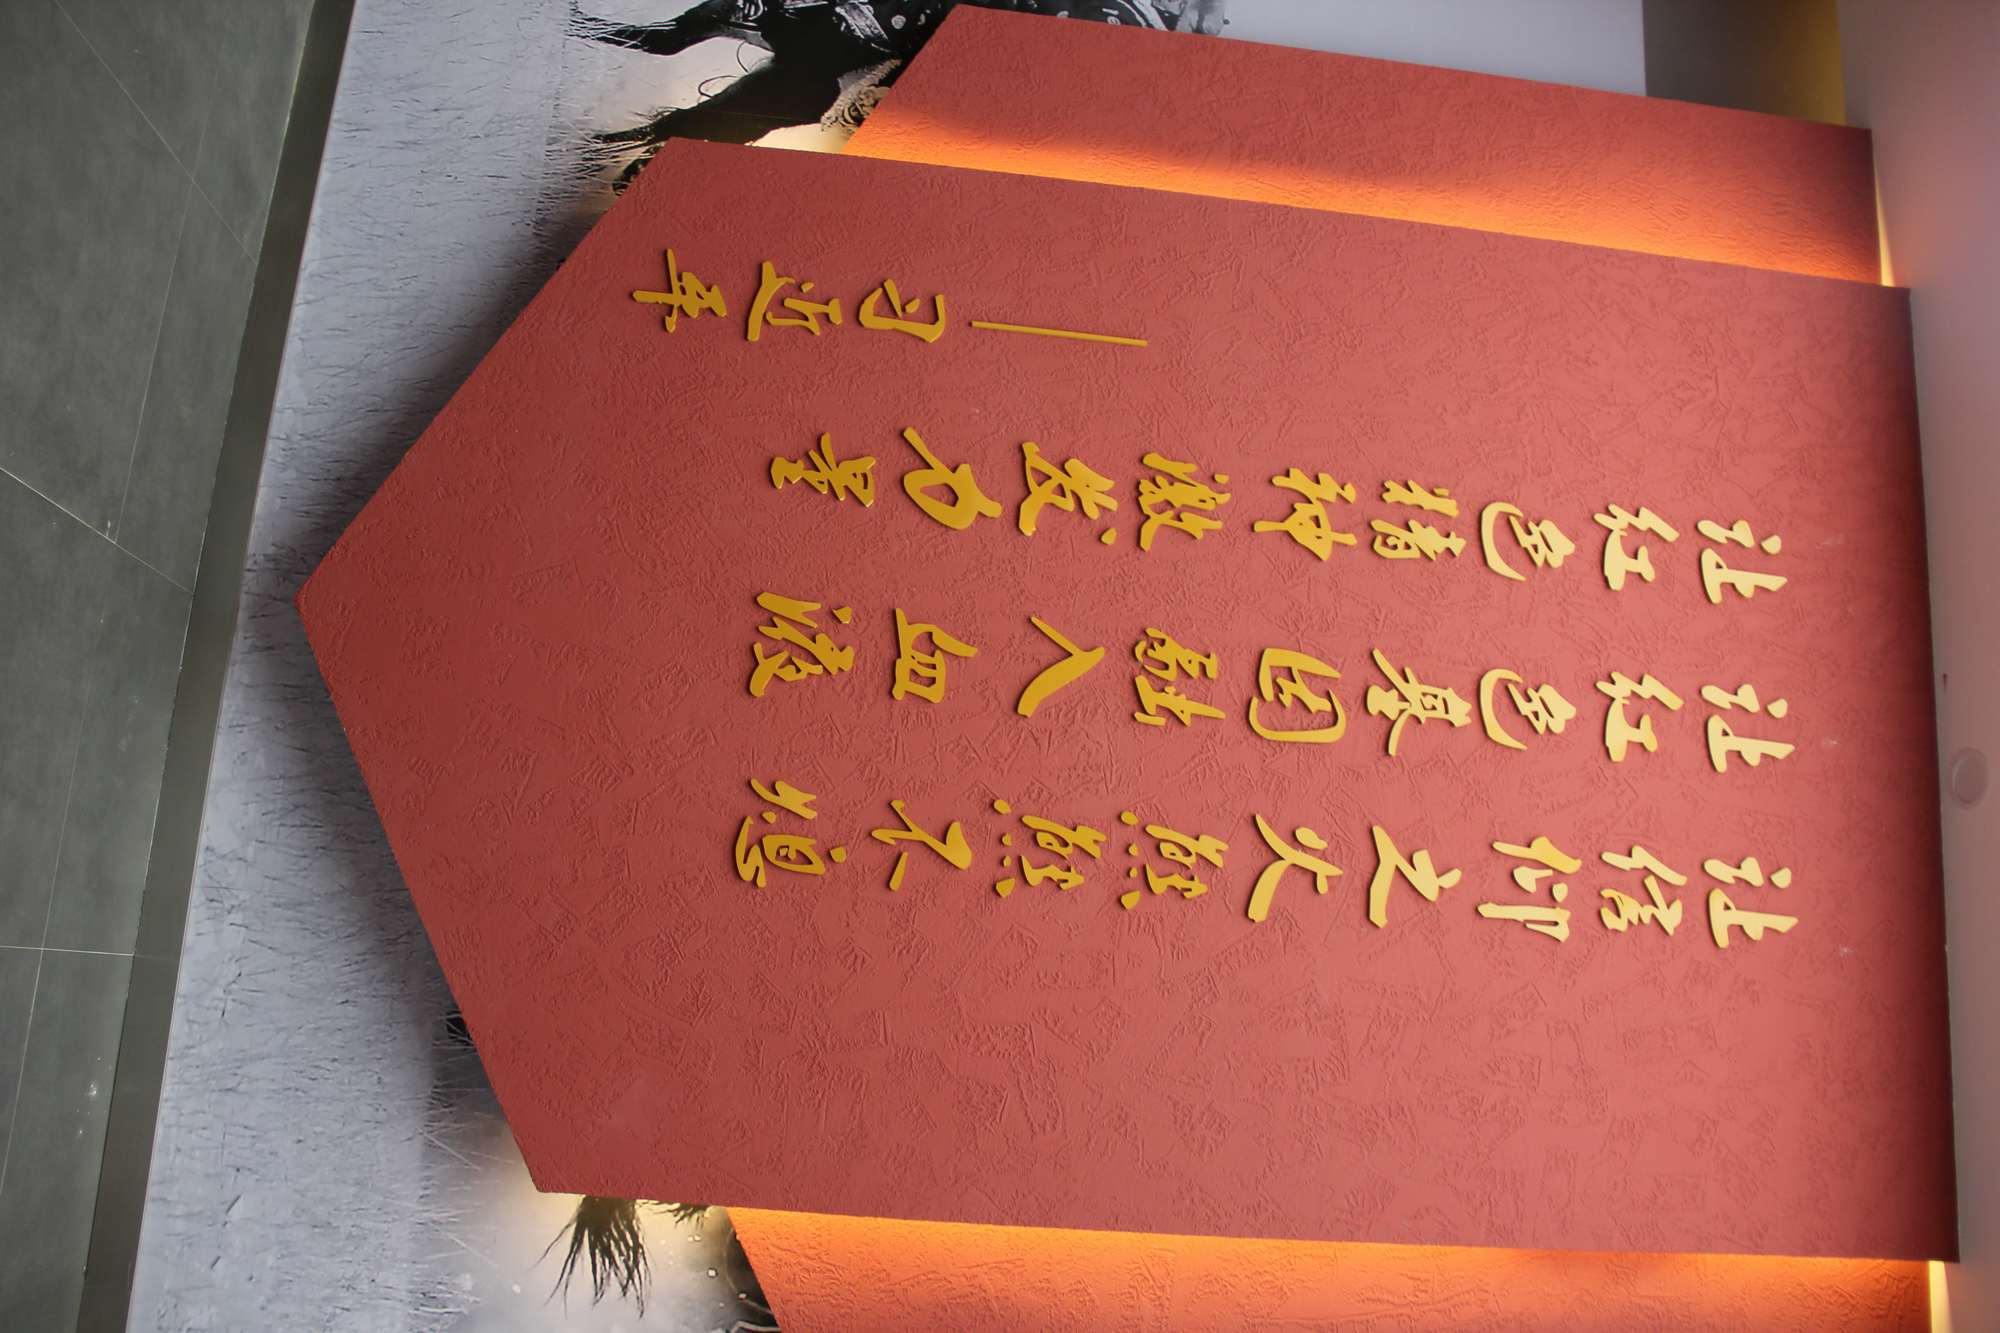 让信仰之火熊熊不熄
让红色基因融入血液
让红色精神激发力量
——习近平